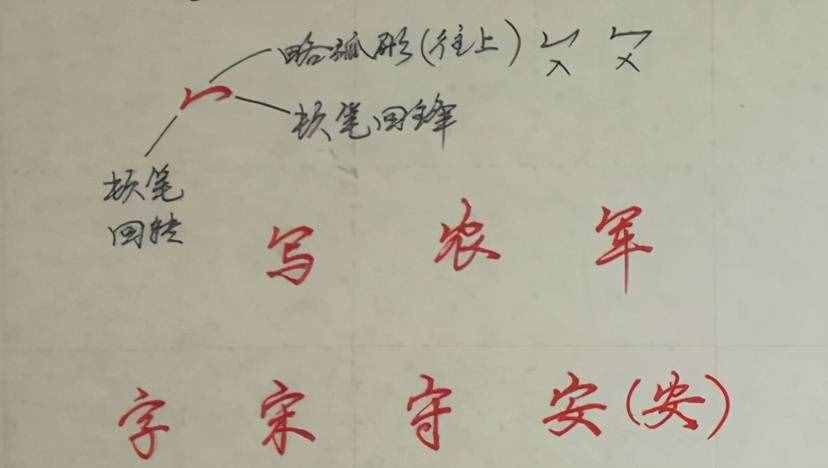 略弧形(往上)
顿笔回锋
顿笔
回转
写 农 军
字 宋 守 安(安)